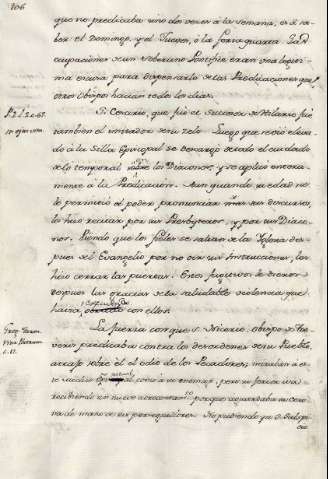 106
que no predicaba sino dos veces à la semana, es à sa-
ber el Domingo, y el Jueves, ò la feria quinta. Las
ocupaciones de un Soberano Pontifice eran una legiti-
ma escusa para dispensarlo de las Predicaciones que
otros Obispos hacian todos los dias.
S. Cesario, que fué el sucesor de Hilario fué
tambien el imitador de su zelo. Luego que se vió eleva-
do à la Silla Episcopal se descargó de todo el cuidado
de lo temporal sobre los Diaconos, y se aplicó entera-
mente à la Predicacion. Aun quando su edad no
le permitió el poder pronunciar sus discursos,
los hizo recitar por un Presbytero, y por un Diaco-
no. Viendo que los fieles se salian de la Yglesia des-
pues del Evangelio por no oir sus Instrucciones, los
hizo cerrar las puertas. Estos fugitivos le dieron
despues las gracias de la saludable violencia que
havia con ellos.
La fuerza con que S. Nicecio, obispo de Tre-
veris predicaba contra los desordenes de su Pueblo,
atrajo sobre él el odio de los Pecadores; miraban à es-
te como à su enemigo, pero su furia iva
recibiendo un nuevo porque aguardaba su coro-
na de mano de sus perseguidores. No pudiendo